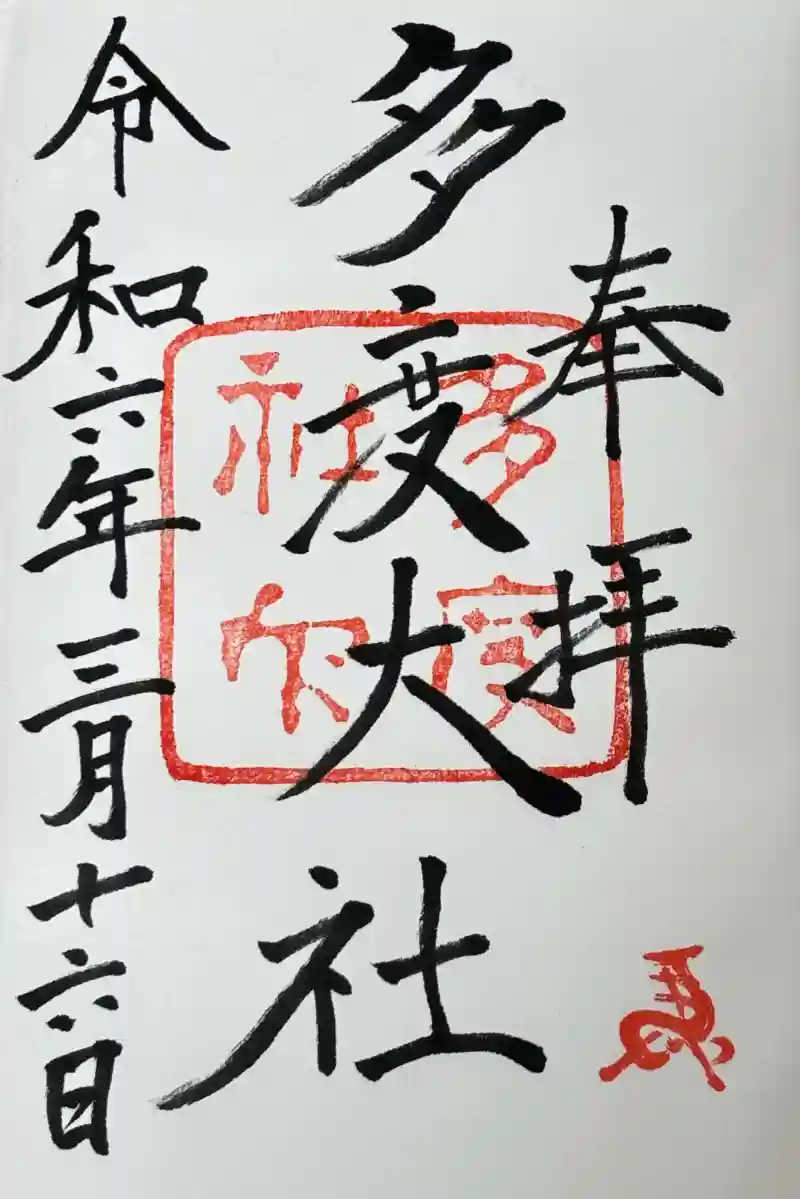 奉拝
多度大社
令和六年三月十六日
多度
大社
馬